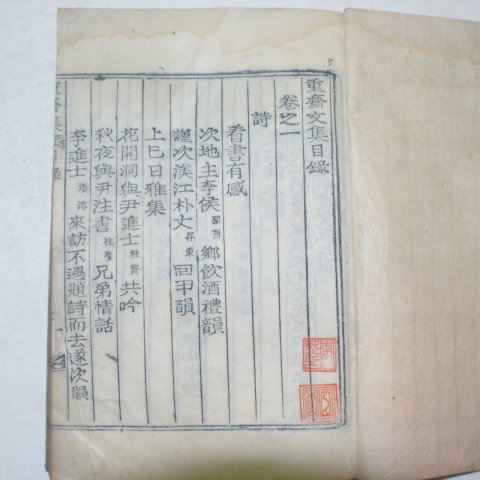 重齋文集目錄
卷之一
詩
看書有感
次地主李侯 鄕飮酒禮韻
謹次溪江朴丈 昇東 回甲韻
上巳日雅集
花開洞與尹進士 共吟
秋夜與尹注書 兄弟情話
李進士 來訪不遇題詩而去遂次韻